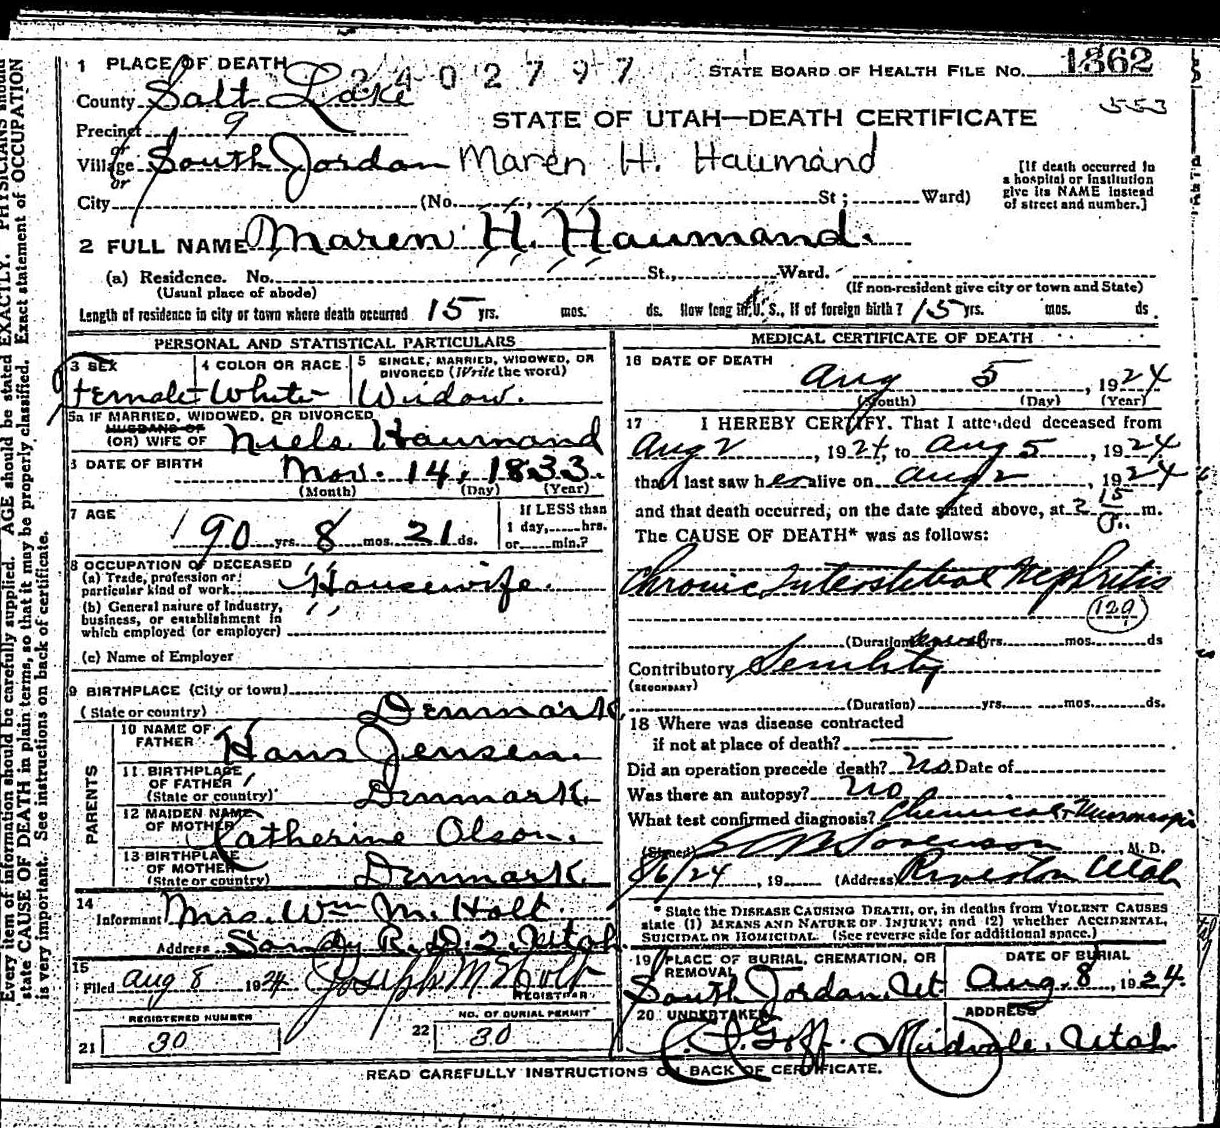 1 PLACE OF DEATH 2402797 STATE BOARD OF HEALTH FILE NO. 1862
County Salt Lake 553
STATE OF UTAH—DEATH CERTIFICATE
Precinct 9
or
Village South Jordan Maren H. Haumand
or
[If death occurred in a hospital or institution give its NAME instead of street and number.]
City (No. St; Ward)
2 FULL NAME Maren H. Haumand.
(a) Residence. No. St., Ward.
(Usual place of abode) (If non-resident give city or town and State)
Length of residence in city or town where death occurred 15 yrs. mos. ds. How long in U. S., if of foreign birth? 15 yrs. mos. ds.
PERSONAL AND STATISTICAL PARTICULARS
3 SEX 4 COLOR OR RACE 5 SINGLE, MARRIED, WIDOWED, OR DIVORCED (Write the word)
Female White Widow.
5a IF MARRIED, WIDOWED, OR DIVORCED
HUSBAND OF
(OR) WIFE OF Niels Haumand
6 DATE OF BIRTH Nov. 14, 1833.
(Month) (Day) (Year)
7 AGE If LESS than
1 day, hrs.
90 yrs. 8 mos. 21 ds. or min.?
8 OCCUPATION OF DECEASED
(a) Trade, profession or particular kind of work Housewife.
(b) General nature of Industry, business, or establishment in which employed (or employer)
(c) Name of Employer
9 BIRTHPLACE (City or town)
(State or country) Denmark
PARENTS
10 NAME OF FATHER Hans Jensen.
11 BIRTHPLACE OF FATHER (State or country) Denmark.
12 MAIDEN NAME OF MOTHER Catherine Olson.
13 BIRTHPLACE OF MOTHER (State or country) Denmark
14
Informant Mrs. Wm M. Holt.
Address Sandy R.D. 2, Utah
15
Filed Aug 8 1924 Joseph M Holt
REGISTRAR
REGISTERED NUMBER NO. OF BURIAL PERMIT
21 30 22 30
MEDICAL CERTIFICATE OF DEATH
16 DATE OF DEATH
Aug 5, 1924
(Month) (Day) (Year)
17 I HEREBY CERTIFY. That I attended deceased from
Aug 2, 1924, to Aug 5, 1924
that I last saw her alive on Aug 2, 1924
and that death occurred, on the date stated above, at 2 15 P. m.
The CAUSE OF DEATH* was as follows:
Chronic Interstitial Nephritis
(129)
(Duration) several yrs. mos. ds
Contributory Senility
(SECONDARY)
(Duration) yrs. mos. ds.
18 Where was disease contracted
if not at place of death?
Did an operation precede death? no Date of
Was there an autopsy? no
What test confirmed diagnosis? Chemical & Microscopic
(Signed) Sorenson, M. D.
8/6/24, 19 (Address) Riverton Utah
* State the DISEASE CAUSING DEATH, or, in deaths from VIOLENT CAUSES
state (1) MEANS AND NATURE OF INJURY; and (2) whether ACCIDENTAL,
SUICIDAL or HOMICIDAL. (See reverse side for additional space.)
19 PLACE OF BURIAL, CREMATION, OR REMOVAL DATE OF BURIAL
South Jordan, Ut Aug. 8, 1924.
20 UNDERTAKER ADDRESS
Goff. Midvale, Utah
READ CAREFULLY INSTRUCTIONS ON BACK OF CERTIFICATE.
Every item of information should be carefully supplied. AGE should be stated EXACTLY. PHYSICIANS should
state CAUSE OF DEATH in plain terms, so that it may be properly classified. Exact statement of OCCUPATION
is very important. See instructions on back of certificate.